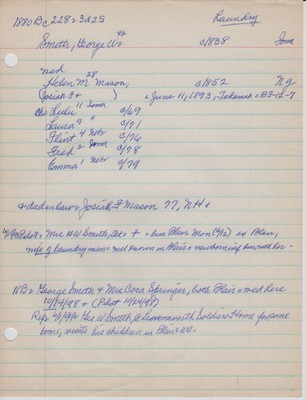 1880 Bc 228 = 3d25 Laundry
Smith, George W = 42 c1838 Iowa
med
Helen M Mason, 28 c1852 Ng
(Josiah F + ) = June 11, 1893, Tekamah = B3-12-7
Chs Lulu 11 Iowa c/69
Laura 9 " c/71
Flint 4 Nebr c/76
Fred 2 Iowa c/78
Emma 1 Nebr c/79
Josiah F Mason 77, NH =
Mrs H W Smith, + = bur Blair Mon is Blair,
wife of laundry man = well known in Blair =
NB = George Smith & Mrs Cora Springer, both Blair = med here
10/14/98 = (Pilot 10/20/98)
Rep Geo W Smith, @ Leavenworth Soldiers Home for some
time, visits his children in Blair =